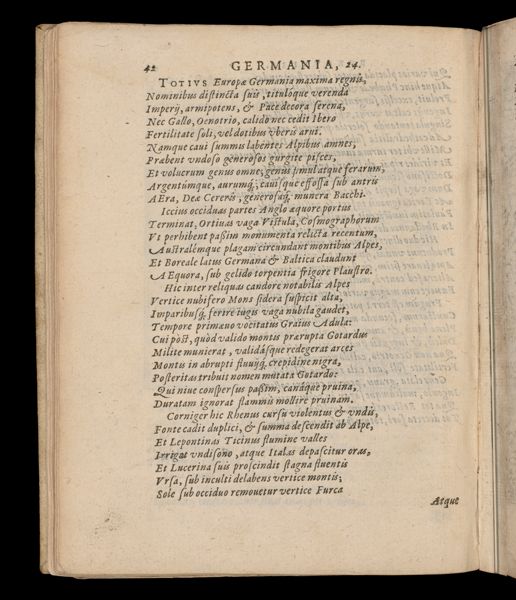 42 GERMANIA, 24.
TOTIVS Europæ Germania maxima regnis,
Nominibus distincta suis, titulóque verenda
Imperij, armipotens, & Pace decora serena,
Nec Gallo, Oenotrio, calido nec cedit Ibero
Fertilitate soli, vel dotibus vberis arui.
Namque caui summis labentes Alpibus amnes,
Præbent vndoso generosos gurgite pisces,
Et volucrum genus omne; genus simulatque ferarum,
Argentúmque, aurumq́; cauísque effossa sub antris
AEra, Deæ Cereris, generosáq́; munera Bacchi.
Iccius occiduas partes Anglo æquore portus
Terminat, Ortiuas vaga Vistula, Cosmographorum
Vt perhibent passim monumenta relicta recentum,
Australémque plagam circundant montibus Alpes,
Et Boreale latus Germana & Baltica claudunt
AEquora, sub gelido torpentia frigore Plaustro.
Hic inter reliquas candore notabilis Alpes
Vertice nubifero Mons sidera suspicit alta,
Imparibusq́; ferire iugis vaga nubila gaudet,
Tempore primæuo vocitatus Graius Adula:
Cui pòst, quòd valido montis prærupta Gotardus
Milite munierat, validásque redegerat arces
Montis in abrupti fluuijq́; crepidine nigra,
Posteritas tribuit nomen mutata Gotardo:
Qui niue conspersus passim, canáque pruina,
Duratam ignorat flammis mollire pruinam.
Corniger hic Rhenus cursu violentus & vndis,
Fonte cadit duplici, & summa descendit ab Alpe,
Et Lepontinas Ticinus flumine valles
Irrigat vndisono, atque Italas depascitur oras,
Et Lucerina suis proscindit stagna fluentis
Vrsa, sub inculti delabens vertice montis;
Sole sub occiduo remouetur vertice Furca
Atque